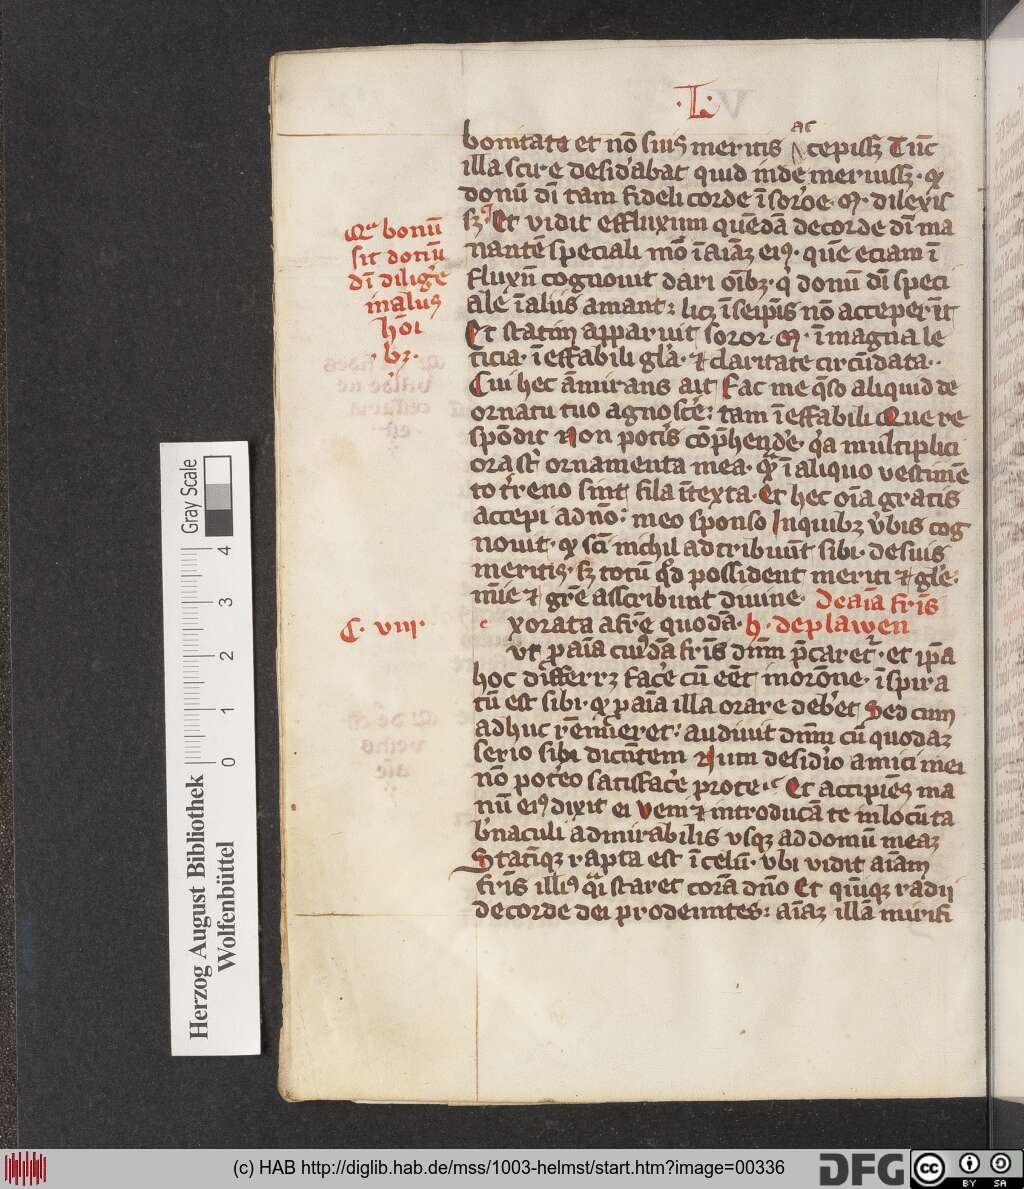 ·L·
bonitate et nō suis meritis accepiss Tūc
illa scire desid'abat quid inde meruiss· qd
donū dī tam fideli corde ī sorore· M· dilexis
sz· Et vidit effluxum quēdā de corde dī ma
nantē speciali mō ī aīaz eius· quē eciam ī
fluxū cognouit dari oībz· qi donū dī speci
ale ī aliis amant: licz ī seipīs nō acceperīt
Et statim apparuit soror· M· ī magna le
ticia· ī effabili gl'a· et claritate circūdata··
Cui hec āmirans ait Fac me qso aliquid de
ornatu tuo agnosce': tam ī effabili Que re
spōdit Non potis cōp'hende'· q'a multiplici
ora sūt ornamenta mea· qua ī aliquo vestimē
to t'reno sint fila ītexta· Et hec oīa gratis
accepi ad nō: meo sponso In quibz v'bis cog
nouit· qd sc̄i nichil adtribuūt sibi· de suis
meritis· sz totū qd possident meriti et gl'e·
mīe et grē asscribunt diuine· De aīa fr̄is
xorata a fr̄e quodā· h· de plawen
ut p aīa cuiꝰdā fr̄is dnm p̄caret:· et ip̄a
hoc differrz face' cū eēt in orōne· īspira
tū est sibi· qd p aīa illa orare deb'et Sed cum
adhuc rēnueret: audiuit dnm cū quodaz
serio sibi dicētem Num desid'io amici mei
nō pot'eo satisface' pro te·: Et accipiēs ma
nū eiꝰ dixit ei Veni et introducā te in locū ta
b'naculi admirabilis vsqz ad domū meaz
Statīqz rapta est ī celū· vbi vidit aīam
fr̄is illiꝰ qsi staret corā dn̄o Et quīqz radii
de corde dei prodeuntes: aīaz illā mirifi
Qa bonū
sit donū
dī dilige'
in aliis
hōi
·bz·
C· viii·
Herzog August Bibliothek
Wolfenbüttel
0 1 2 3 4
Gray Scale
(c) HAB http://diglib.hab.de/mss/1003-helmst/start.htm?image=00336
DFG
cc BY SA